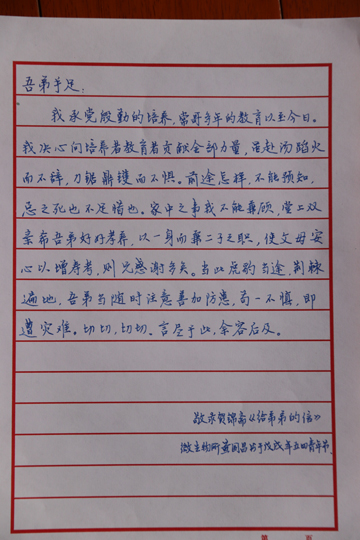 吾弟手足：
我承党殷勤的培养，常哥多年的教育以至今日。
我决心向培养者教育者贡献全部力量，虽赴汤蹈火
而不辞，刀锯鼎镬而不惧。前途怎样，不能预知，
总之死也不足惜也。家中之事我不能兼顾，堂上双
亲希吾弟好好孝养，以一身而兼二子之职，使父母安
心以增寿考，则兄感谢多矣。当此虎豹当途，荆棘
遍地，吾弟当随时注意善加防患，苟一不慎，即
遭灾难。切切，切切。言尽于此，余容后及。
敬录贺锦斋《给弟弟的信》
微生物所 书于戊戌年五四青年节
第 页